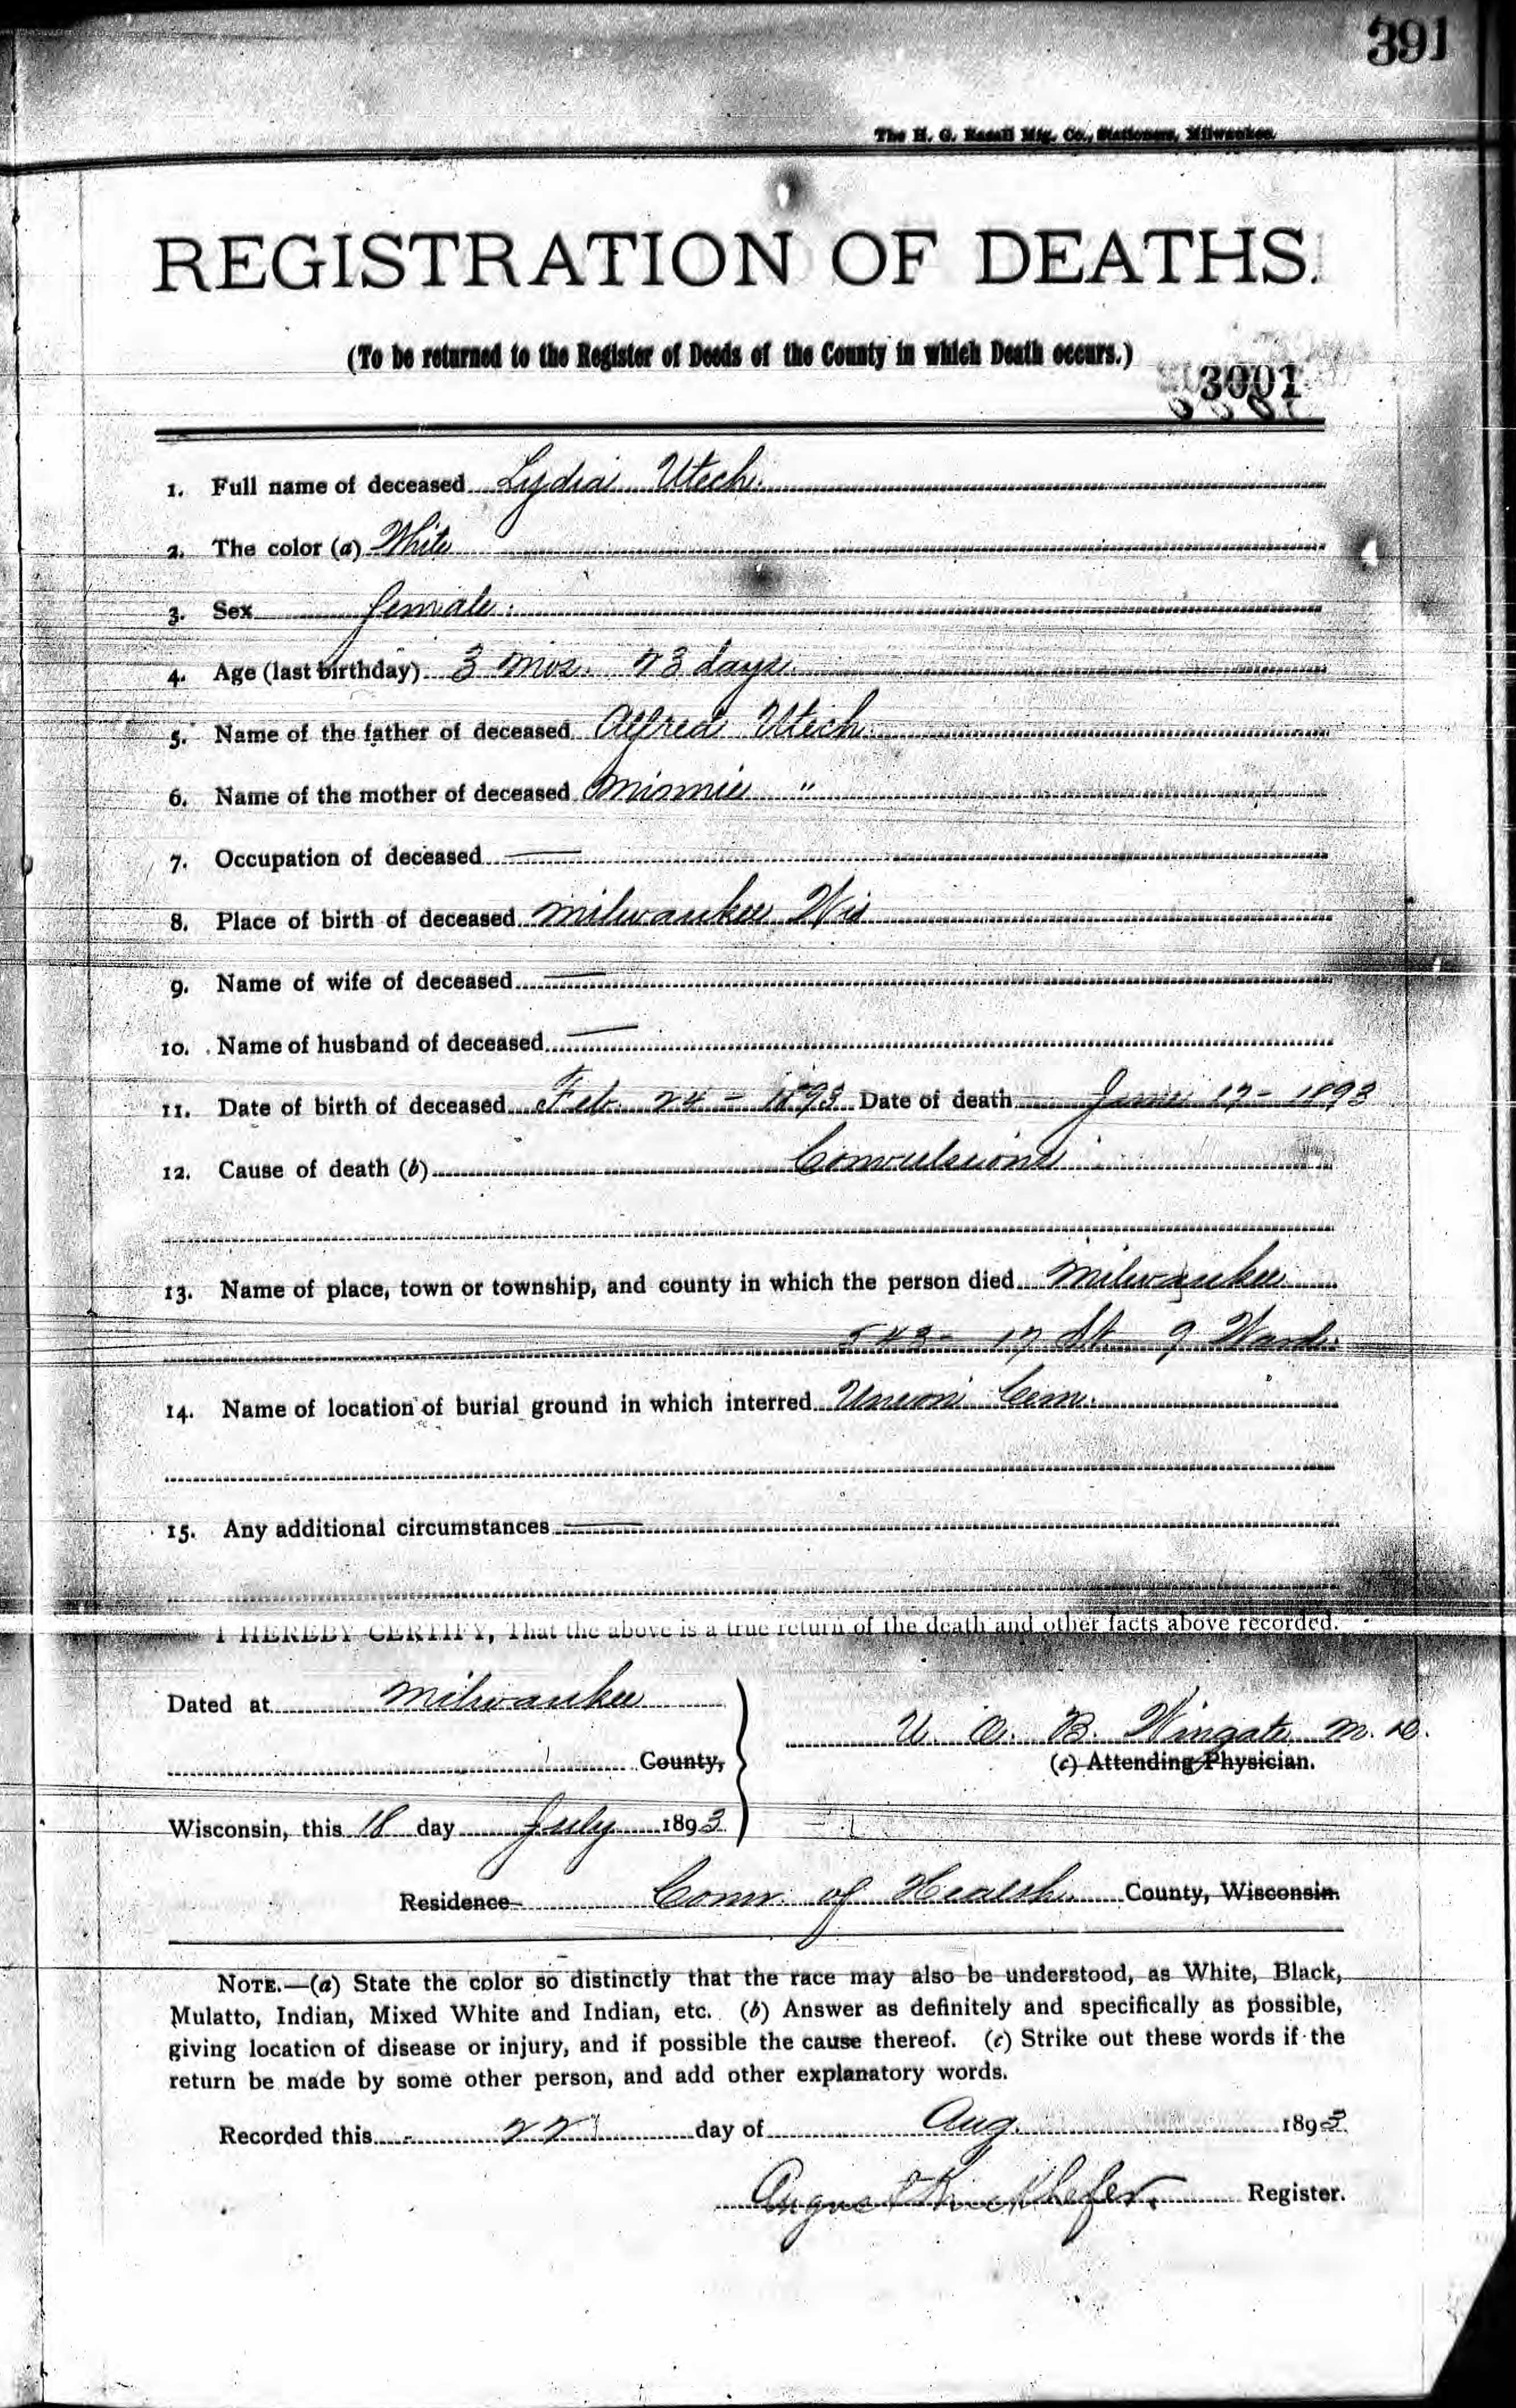 391
The H. G. Razall Mfg. Co., Stationers, Milwaukee.
REGISTRATION OF DEATHS.
(To be returned to the Register of Deeds of the County in which Death occurs.)
3001
1. Full name of deceased Lydia Utech.
2. The color (a) White
3. Sex female.
4. Age (last birthday) 3 mos. 23 days.
5. Name of the father of deceased Alfred Utech
6. Name of the mother of deceased Minnie "
7. Occupation of deceased —
8. Place of birth of deceased Milwaukee Wis
9. Name of wife of deceased —
10. Name of husband of deceased —
11. Date of birth of deceased Feb. 24 - 1893 Date of death June 17 - 1893
12. Cause of death (b) Convulsions
13. Name of place, town or township, and county in which the person died Milwaukee
543 - 17 St 9 Ward.
14. Name of location of burial ground in which interred Union Cem.
15. Any additional circumstances —
I HEREBY CERTIFY, That the above is a true return of the death and other facts above recorded.
Dated at Milwaukee
U. O. B. Wingate M. D.
County,
(c) Attending Physician.
Wisconsin, this 18 day July 1893
Residence Comr. of Health County, Wisconsin.
NOTE.—(a) State the color so distinctly that the race may also be understood, as White, Black,
Mulatto, Indian, Mixed White and Indian, etc. (b) Answer as definitely and specifically as possible,
giving location of disease or injury, and if possible the cause thereof. (c) Strike out these words if the
return be made by some other person, and add other explanatory words.
Recorded this 22 day of Aug. 1893
August Kieckhefer. Register.